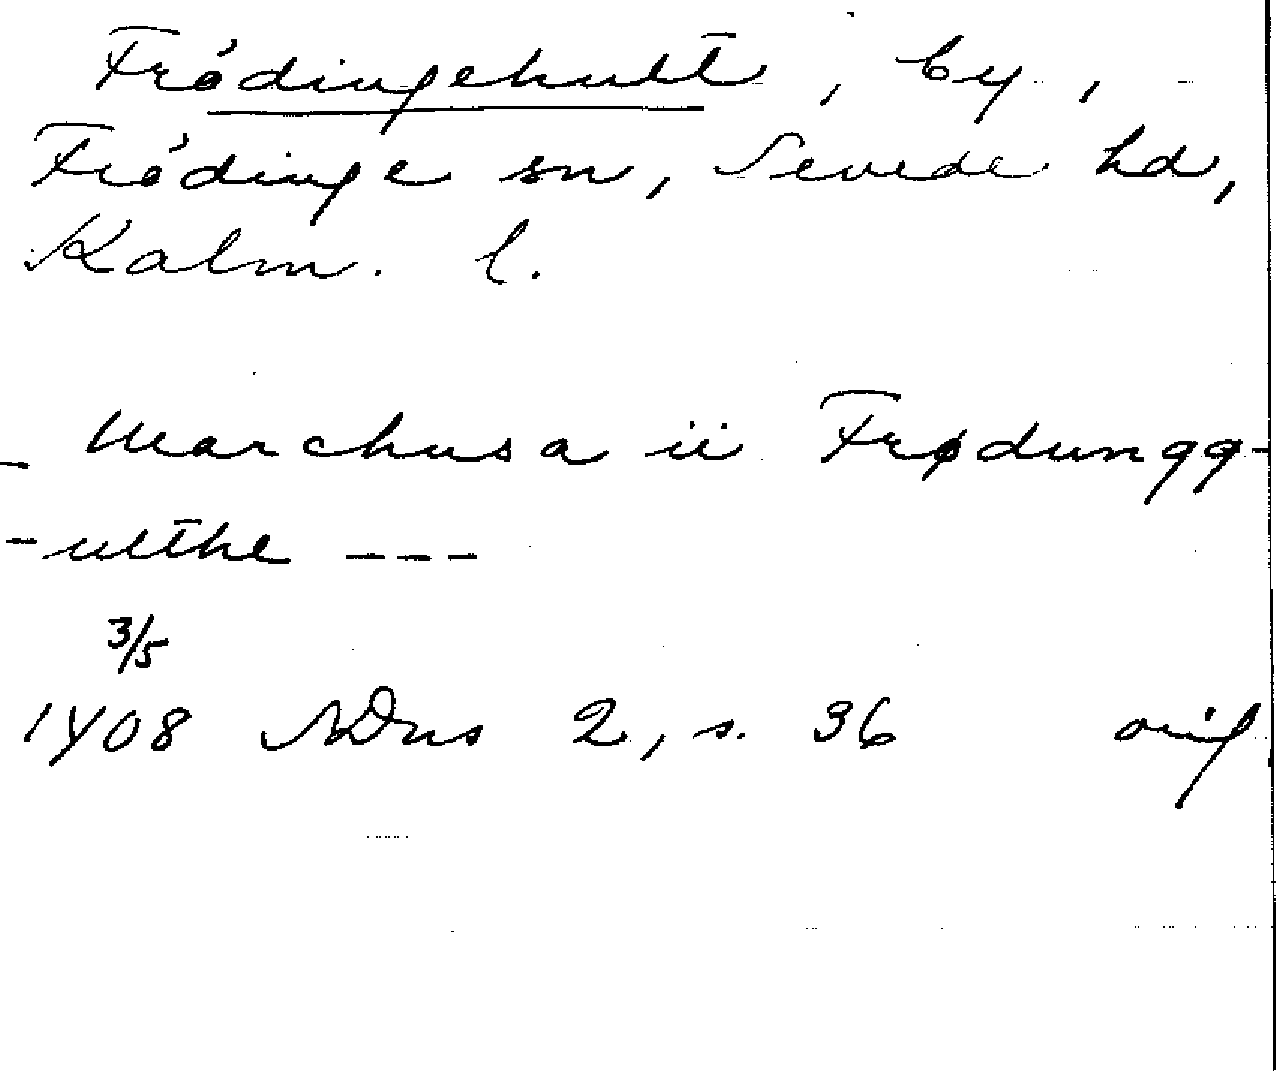 Frödingehult, by,
Frödinge sn, Sevede hd,
Kalm. l.
_ Marchusa ii Frødungg-
-ulthe ---
3/5
1408 SDns 2, s. 36 orig